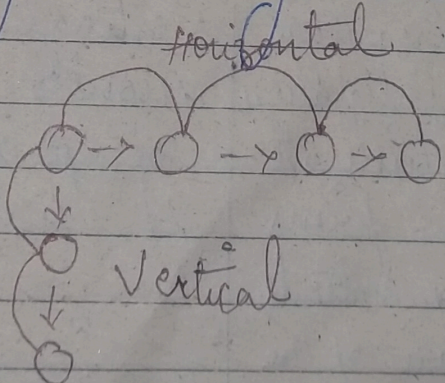 Horizontal
Vertical